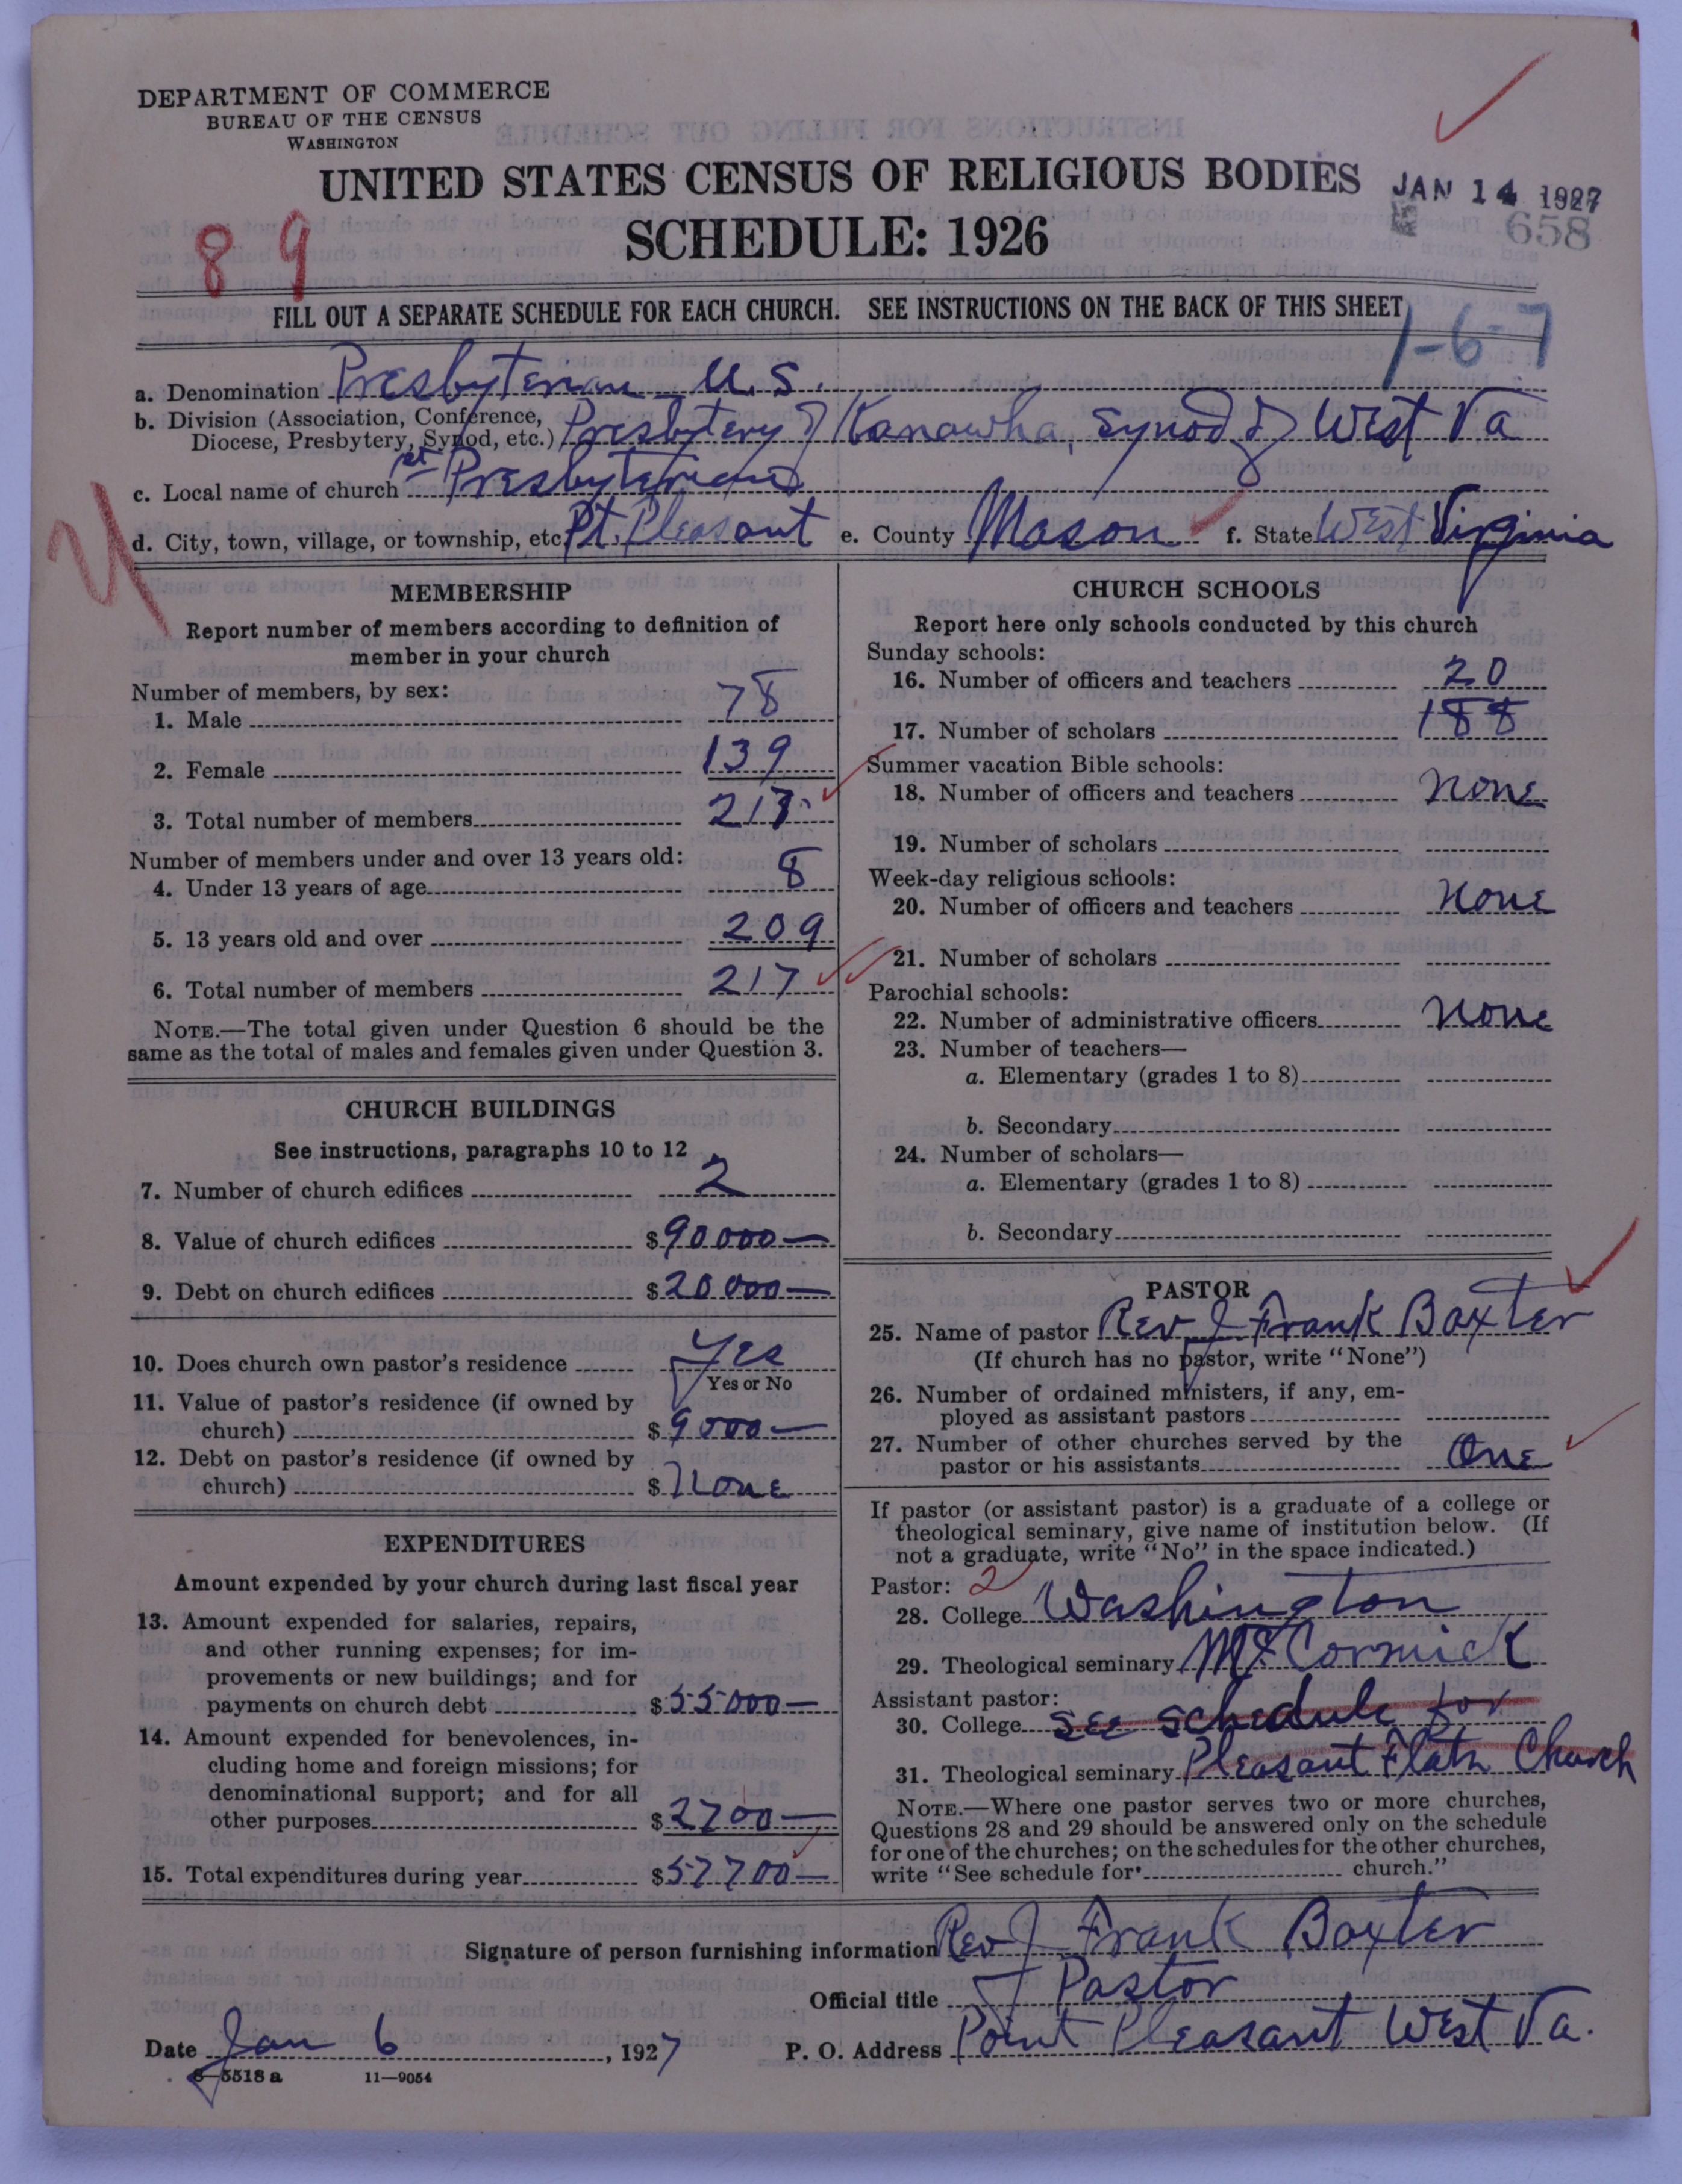 DEPARTMENT OF COMMERCE
BUREAU OF THE CENSUS
WASHINGTON
UNITED STATES CENSUS OF RELIGIOUS BODIES
SCHEDULE: 1926
JAN 14 1927
658
8 9
FILL OUT A SEPARATE SCHEDULE FOR EACH CHURCH. SEE INSTRUCTIONS ON THE BACK OF THIS SHEET
1-6-7
a. Denomination Presbyterian U.S.
b. Division (Association, Conference,
Diocese, Presbytery, Synod, etc.) Presbytery of Kanawha, Synod of West Va
c. Local name of church 1st Presbyterian
d. City, town, village, or township, etc. Pt. Pleasant e. County Mason f. State West Virginia
MEMBERSHIP
Report number of members according to definition of
member in your church
Number of members, by sex:
1. Male 78
2. Female 139
3. Total number of members 217
Number of members under and over 13 years old:
4. Under 13 years of age 8
5. 13 years old and over 209
6. Total number of members 217
NOTE.—The total given under Question 6 should be the
same as the total of males and females given under Question 3.
CHURCH BUILDINGS
See instructions, paragraphs 10 to 12
7. Number of church edifices 2
8. Value of church edifices $90000—
9. Debt on church edifices $20000—
10. Does church own pastor's residence Yes
Yes or No
11. Value of pastor's residence (if owned by
church) $9000—
12. Debt on pastor's residence (if owned by
church) $None
EXPENDITURES
Amount expended by your church during last fiscal year
13. Amount expended for salaries, repairs,
and other running expenses; for im-
provements or new buildings; and for
payments on church debt $55000—
14. Amount expended for benevolences, in-
cluding home and foreign missions; for
denominational support; and for all
other purposes $2700—
15. Total expenditures during year $57700—
CHURCH SCHOOLS
Report here only schools conducted by this church
Sunday schools:
16. Number of officers and teachers 20
17. Number of scholars 188
Summer vacation Bible schools:
18. Number of officers and teachers None
19. Number of scholars
Week-day religious schools:
20. Number of officers and teachers None
21. Number of scholars
Parochial schools:
22. Number of administrative officers None
23. Number of teachers—
a. Elementary (grades 1 to 8)
b. Secondary
24. Number of scholars—
a. Elementary (grades 1 to 8)
b. Secondary
PASTOR
25. Name of pastor Rev J Frank Baxter
(If church has no pastor, write "None")
26. Number of ordained ministers, if any, em-
ployed as assistant pastors
27. Number of other churches served by the
pastor or his assistants One
If pastor (or assistant pastor) is a graduate of a college or
theological seminary, give name of institution below. (If
not a graduate, write "No" in the space indicated.)
Pastor: 2
28. College Washington
29. Theological seminary McCormick
Assistant pastor:
30. College See schedule for
31. Theological seminary Pleasant Flats Church
NOTE.—Where one pastor serves two or more churches,
Questions 28 and 29 should be answered only on the schedule
for one of the churches; on the schedules for the other churches,
write "See schedule for church."
Signature of person furnishing information Rev J Frank Baxter
Official title Pastor
Date Jan 6, 1927 P. O. Address Point Pleasant West Va.
8—5518 a 11—9054